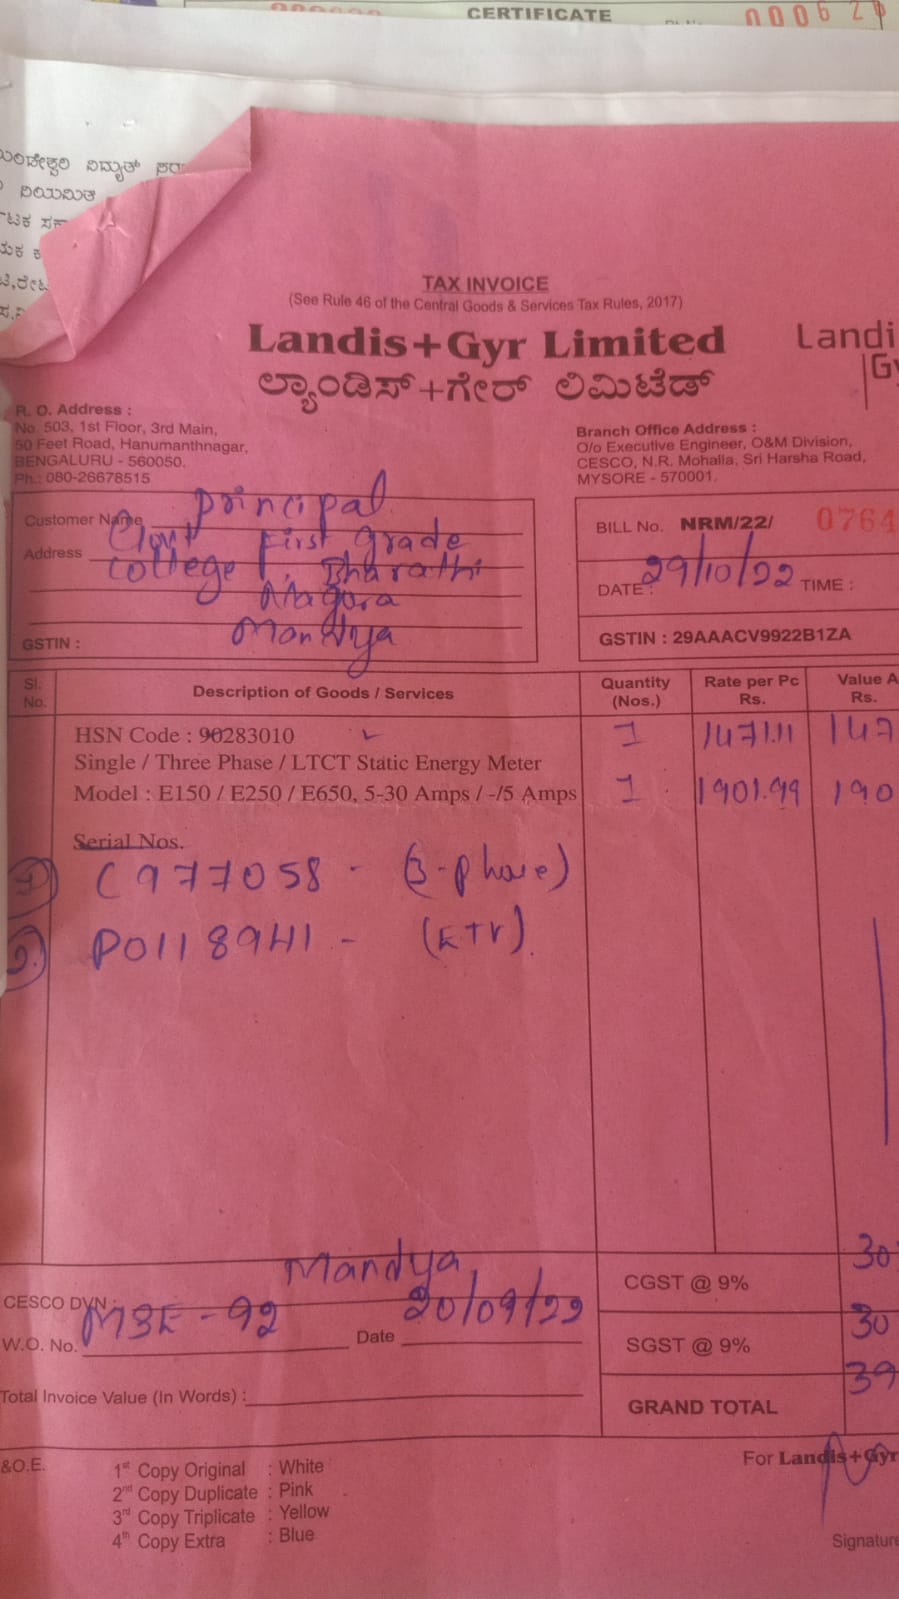 CERTIFICATE
0006 2
ವಿದ್ಯುತ್
ನಿಯಮಿತ
TAX INVOICE
(See Rule 46 of the Central Goods & Services Tax Rules, 2017)
Landis+Gyr Limited
Landi
Gy
ಲ್ಯಾಂಡಿಸ್+ಗೇರ್ ಲಿಮಿಟೆಡ್
R. O. Address :
No. 503, 1st Floor, 3rd Main,
50 Feet Road, Hanumanthnagar,
BENGALURU - 560050.
Ph.: 080-26678515
Branch Office Address :
O/o Executive Engineer, O&M Division,
CESCO, N.R. Mohalla, Sri Harsha Road,
MYSORE - 570001.
Customer Name Principal
Address Govt First Grade
College, Bharathi
Nagara
Mandya
GSTIN :
BILL No. NRM/22/ 0764
DATE : 29/10/22 TIME :
GSTIN : 29AAACV9922B1ZA
Sl. No. Description of Goods / Services Quantity (Nos.) Rate per Pc Rs. Value A Rs.
HSN Code : 90283010 1 1471.11 147
Single / Three Phase / LTCT Static Energy Meter
Model : E150 / E250 / E650, 5-30 Amps / -/5 Amps 1 1901.99 190
Serial Nos.
1) C977058 - (3-phase)
2) P0118941 - (ETV)
Mandya
CESCO DVN :
W.O. No. MSE-92 Date 20/09/22
CGST @ 9% 30
SGST @ 9% 30
Total Invoice Value (In Words) :
GRAND TOTAL 39
&O.E.
1st Copy Original : White
2nd Copy Duplicate : Pink
3rd Copy Triplicate : Yellow
4th Copy Extra : Blue
For Landis+Gyr
Signature